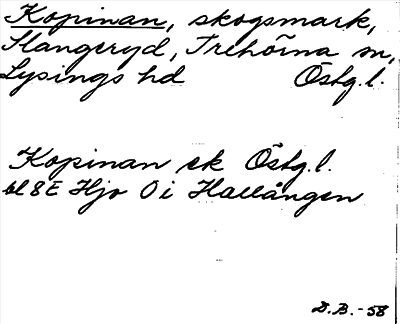 Kopinan, skogsmark,
Slangeryd, Trehörna sn,
Lysings hd Östg.l.
Kopinan ek Östg.l.
bl 8E Hjo 0 i Hallången
D.B. -58